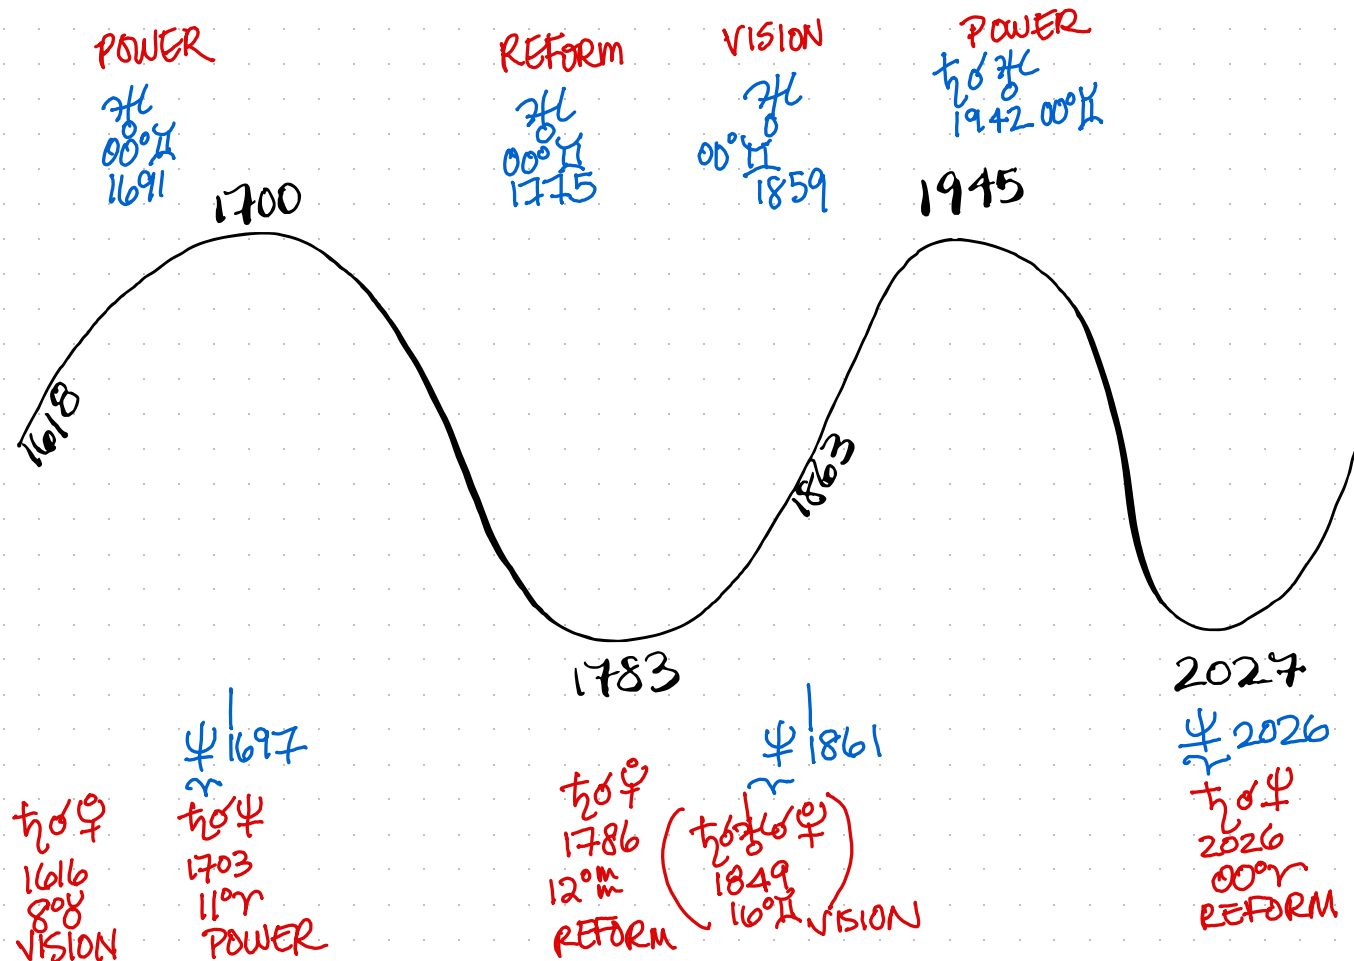 POWER
♅
00°♊
1691
REFORM
♅
00°♊
1775
VISION
♅
00°♊
1859
POWER
♄☌♅
1942 00°♊
1700
1945
1618
1863
1783
2027
♆ 1697
♈
♆ 1861
♈
♆ 2026
♈
♄☌
1616
8°♉
VISION
♄☌♆
1703
11°♈
POWER
♄☌
1786
12°
REFORM
(♄☌♅☌
1849
16° VISION)
♄☌♆
2026
00°♈
REFORM